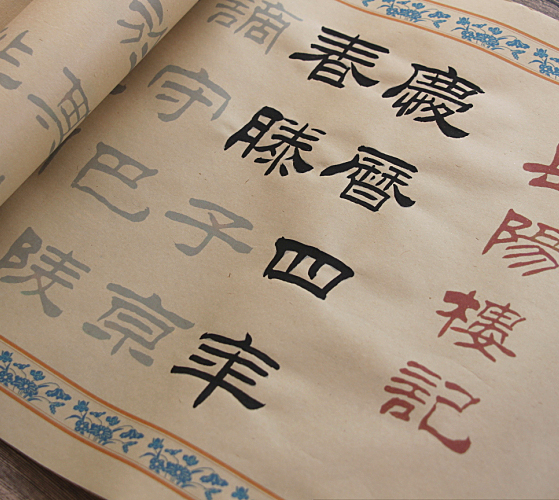 岳陽樓記
慶曆四年
春滕子京
謫守巴陵